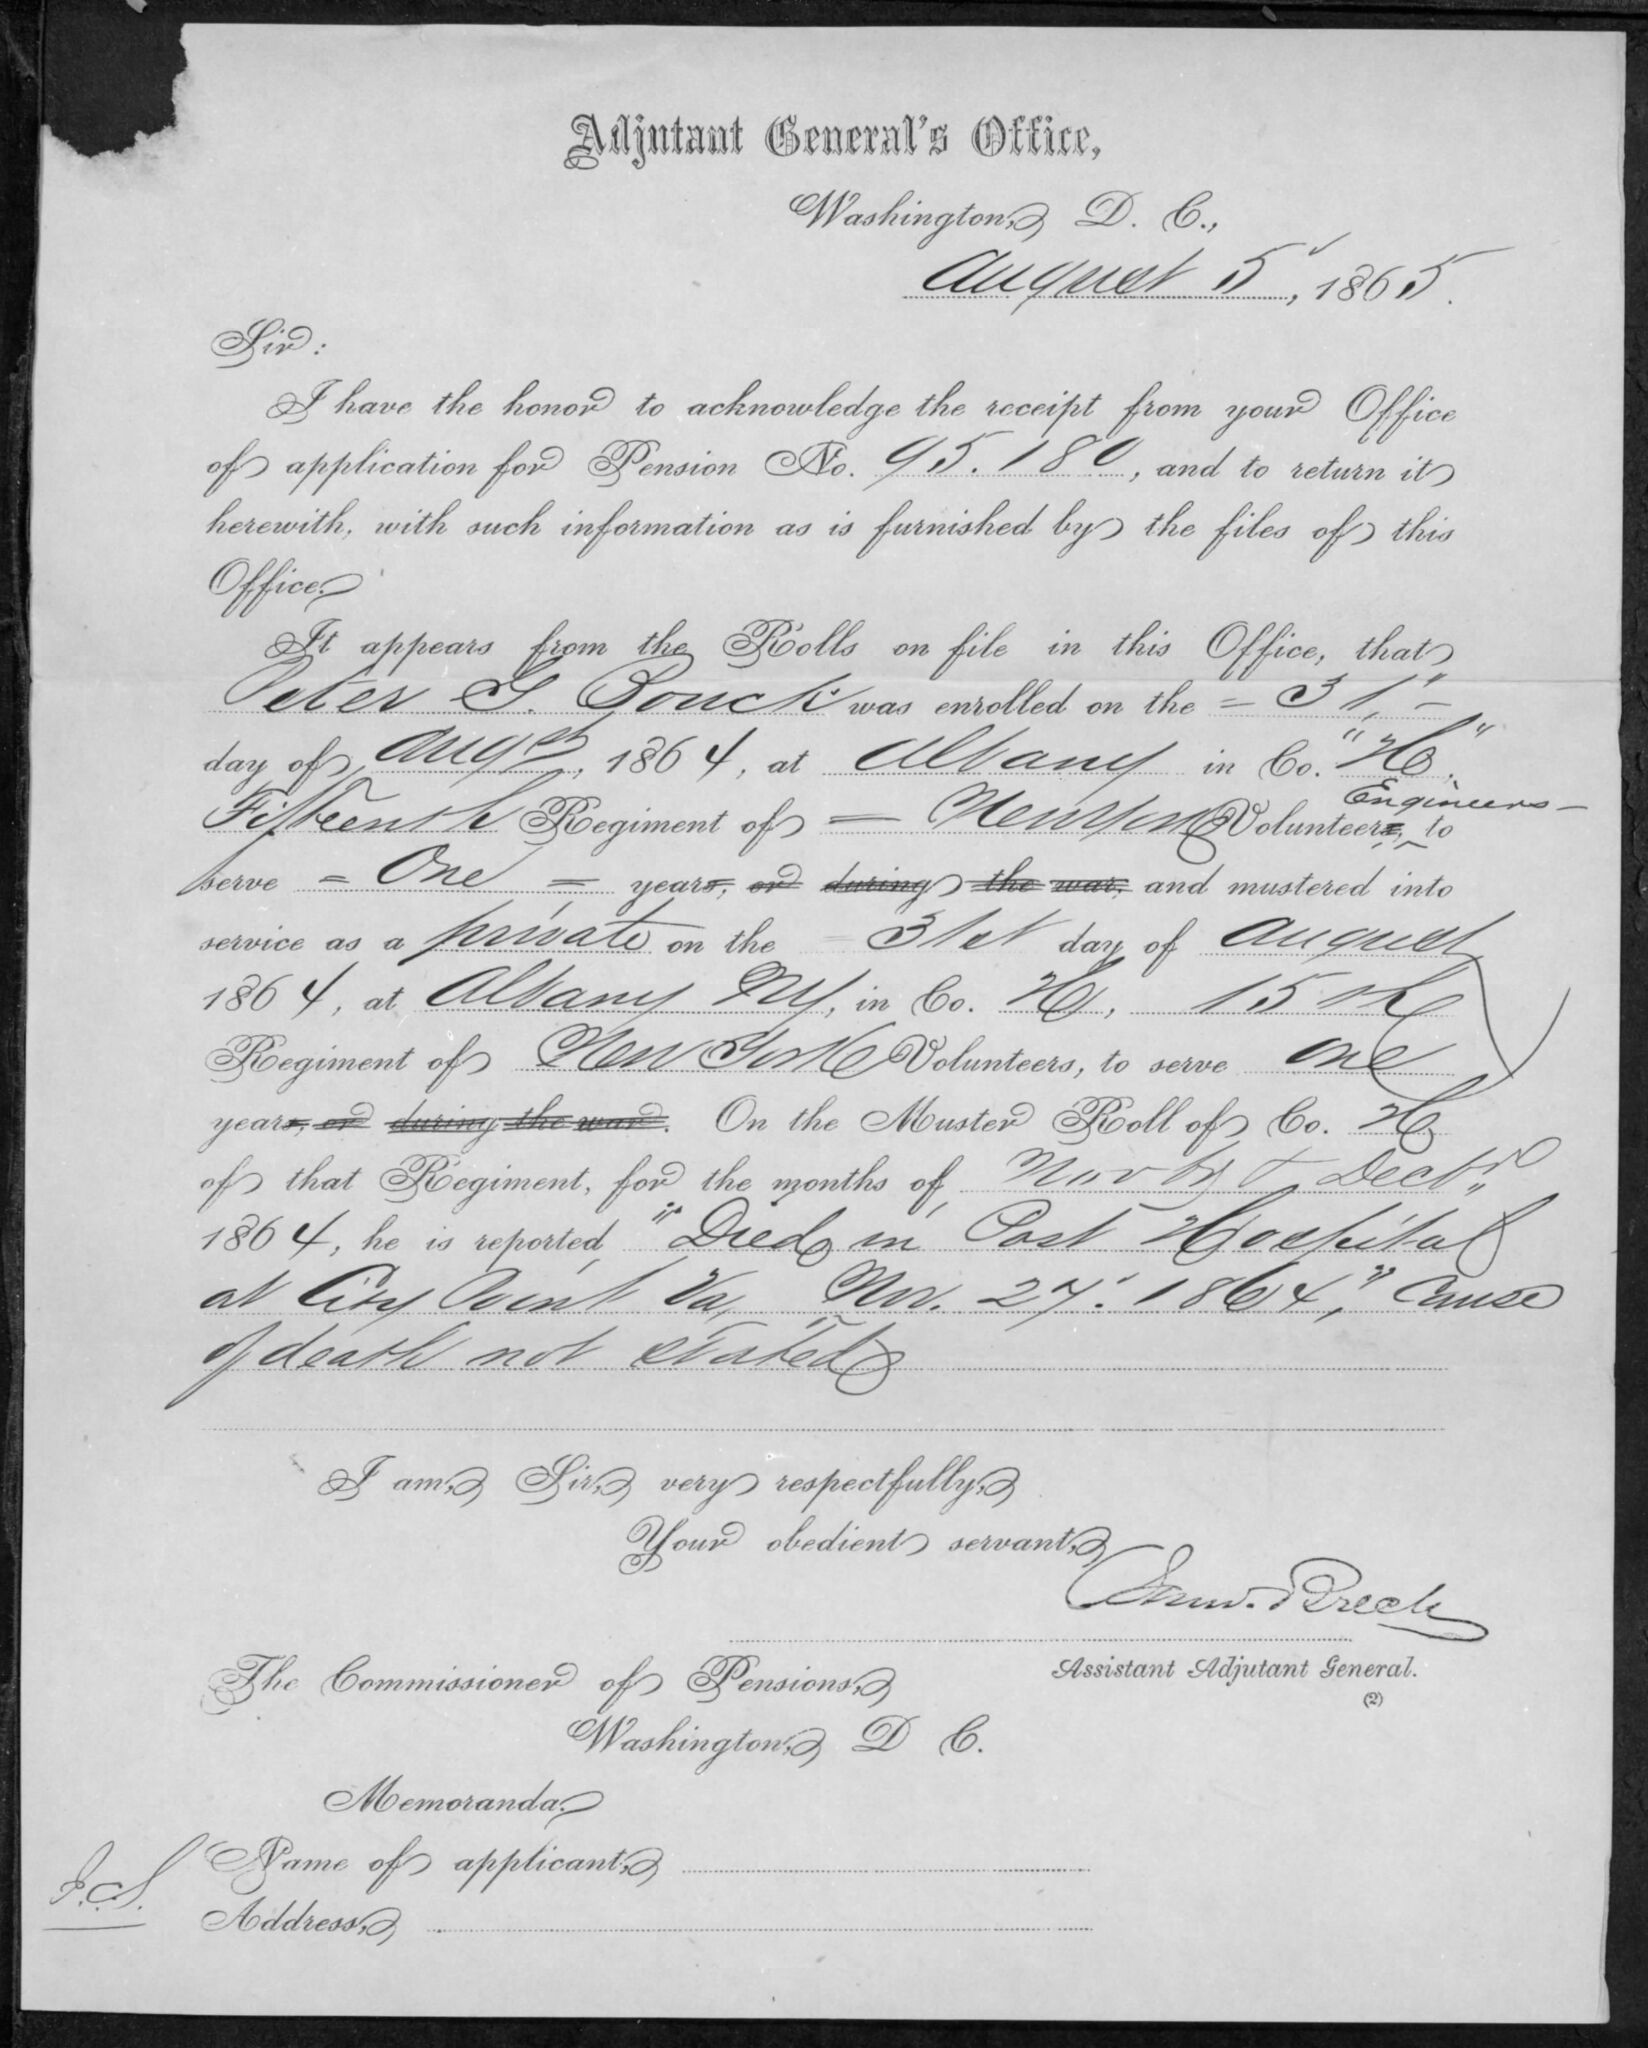 Adjutant General's Office,
Washington, D. C.,
August 5, 1865.
Sir:
I have the honor to acknowledge the receipt from your Office
of application for Pension No. 95.180, and to return it
herewith, with such information as is furnished by the files of this
Office.
It appears from the Rolls on file in this Office, that
Peter G. Bouck was enrolled on the = 31," –
day of Augst, 1864, at Albany in Co. "H".
Engineers –
Fifteenth Regiment of = New York Volunteer, to
serve = One = years, or during the war, and mustered into
service as a private on the 31st day of August
1864, at Albany NY, in Co. H, 15th
Regiment of New York Volunteers, to serve one
years, or during the war. On the Muster Roll of Co. H
of that Regiment, for the months of Novbr & Decbr
1864, he is reported "Died in Post Hospital
at City Point Va, Nov. 27. 1864," Cause
of death not stated
I am, Sir, very respectfully,
Your obedient servant,
Saml. Breck
Assistant Adjutant General.
(2)
The Commissioner of Pensions,
Washington, D C.
Memoranda.
Name of applicant,
J.C.S.
Address,